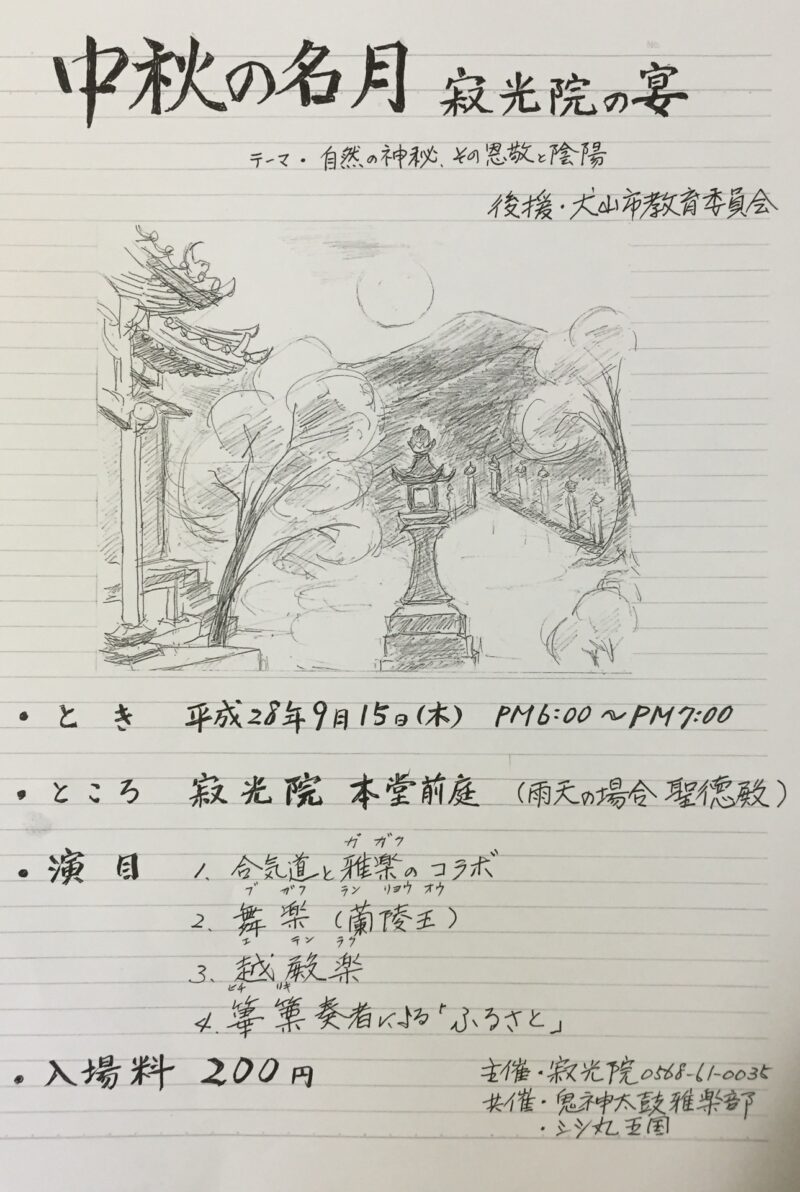 中秋の名月 寂光院の宴
テーマ・自然の神秘、その恩敬と陰陽
後援・犬山市教育委員会
・とき 平成28年9月15日(木) PM6:00〜PM7:00
・ところ 寂光院 本堂前庭 (雨天の場合 聖徳殿)
ガ ガク
・演目 1. 合気道と雅楽のコラボ
ブ ガク ラン リョウ オウ
2. 舞楽 (蘭陵王)
エ テン ラク
3. 越殿楽
ヒチ リキ
4. 篳篥奏者による「ふるさと」
・入場料 200円
主催・寂光院0568-61-0035
共催・鬼神太鼓雅楽部
・シシ丸王国